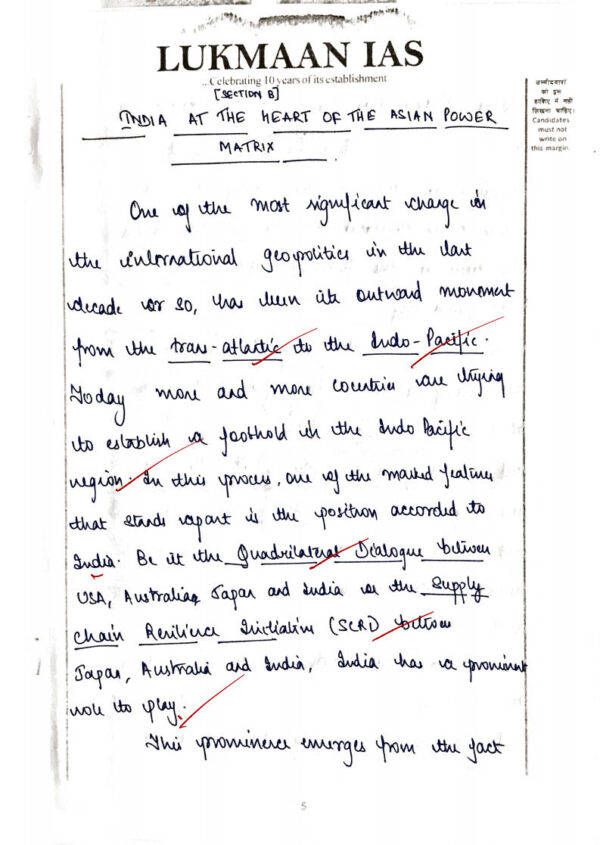 LUKMAAN IAS
...Celebrating 10 years of its establishment
[SECTION B]
INDIA AT THE HEART OF THE ASIAN POWER
MATRIX
उम्मीदवारों
को इस
हाशिए में नहीं
लिखना चाहिए।
Candidates
must not
write on
this margin.
One of the most significant change in
the international geopolitics in the last
decade or so, has been its outward movement
from the trans-atlantic to the Indo-Pacific.
Today more and more countries are trying
to establish a foothold in the Indo Pacific
region. In this process, one of the marked features
that stands apart is the position accorded to
India. Be it the Quadrilateral Dialogue between
USA, Australia, Japan and India or the Supply
chain Resilience Initiative (SCRI) between
Japan, Australia and India, India has a prominent
role to play.
This prominence emerges from the fact
5